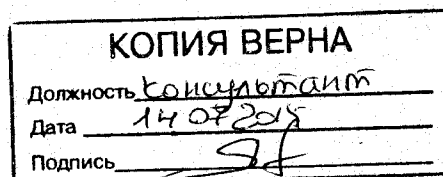 КОПИЯ ВЕРНА
Должность консультант
Дата 14 07 2015
Подпись